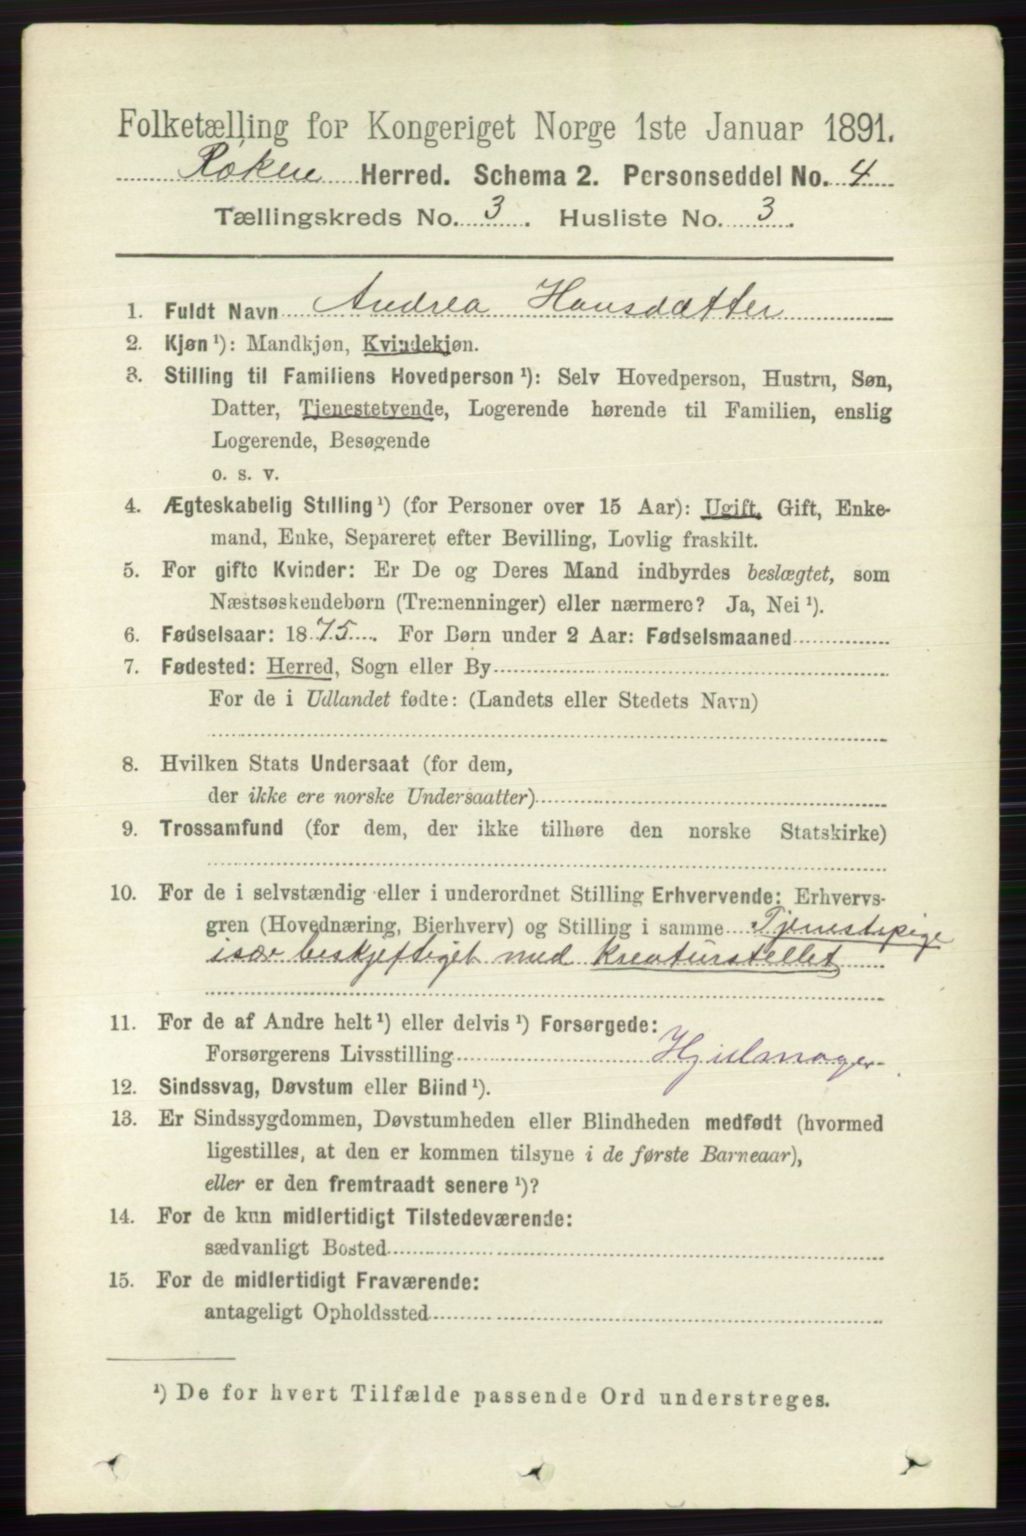 Folketælling for Kongeriget Norge 1ste Januar 1891.
Røken Herred. Schema 2. Personseddel No. 4
Tællingskreds No. 3. Husliste No. 3.
1. Fuldt Navn Andrea Hansdatter
2. Kjøn ¹): Mandkjøn, Kvindekjøn.
3. Stilling til Familiens Hovedperson ¹): Selv Hovedperson, Hustru, Søn,
Datter, Tjenestetyende, Logerende hørende til Familien, enslig
Logerende, Besøgende
o. s. v.
4. Ægteskabelig Stilling ¹) (for Personer over 15 Aar): Ugift, Gift, Enke-
mand, Enke, Separeret efter Bevilling, Lovlig fraskilt.
5. For gifte Kvinder: Er De og Deres Mand indbyrdes beslægtet, som
Næstsøskendebørn (Tremenninger) eller nærmere? Ja, Nei ¹).
6. Fødselsaar: 1875. For Børn under 2 Aar: Fødselsmaaned
7. Fødested: Herred, Sogn eller By
For de i Udlandet fødte: (Landets eller Stedets Navn)
8. Hvilken Stats Undersaat (for dem,
der ikke ere norske Undersaatter)
9. Trossamfund (for dem, der ikke tilhøre den norske Statskirke)
10. For de i selvstændig eller i underordnet Stilling Erhvervende: Erhvervs-
gren (Hovednæring, Bierhverv) og Stilling i samme Tjenestepige
især beskjeftiget med kreaturstellet
11. For de af Andre helt ¹) eller delvis ¹) Forsørgede:
Forsørgerens Livsstilling Hjulmager.
12. Sindssvag, Døvstum eller Blind ¹).
13. Er Sindssygdommen, Døvstumheden eller Blindheden medfødt (hvormed
ligestilles, at den er kommen tilsyne i de første Barneaar),
eller er den fremtraadt senere ¹)?
14. For de kun midlertidigt Tilstedeværende:
sædvanligt Bosted
15. For de midlertidigt Fraværende:
antageligt Opholdssted
¹) De for hvert Tilfælde passende Ord understreges.